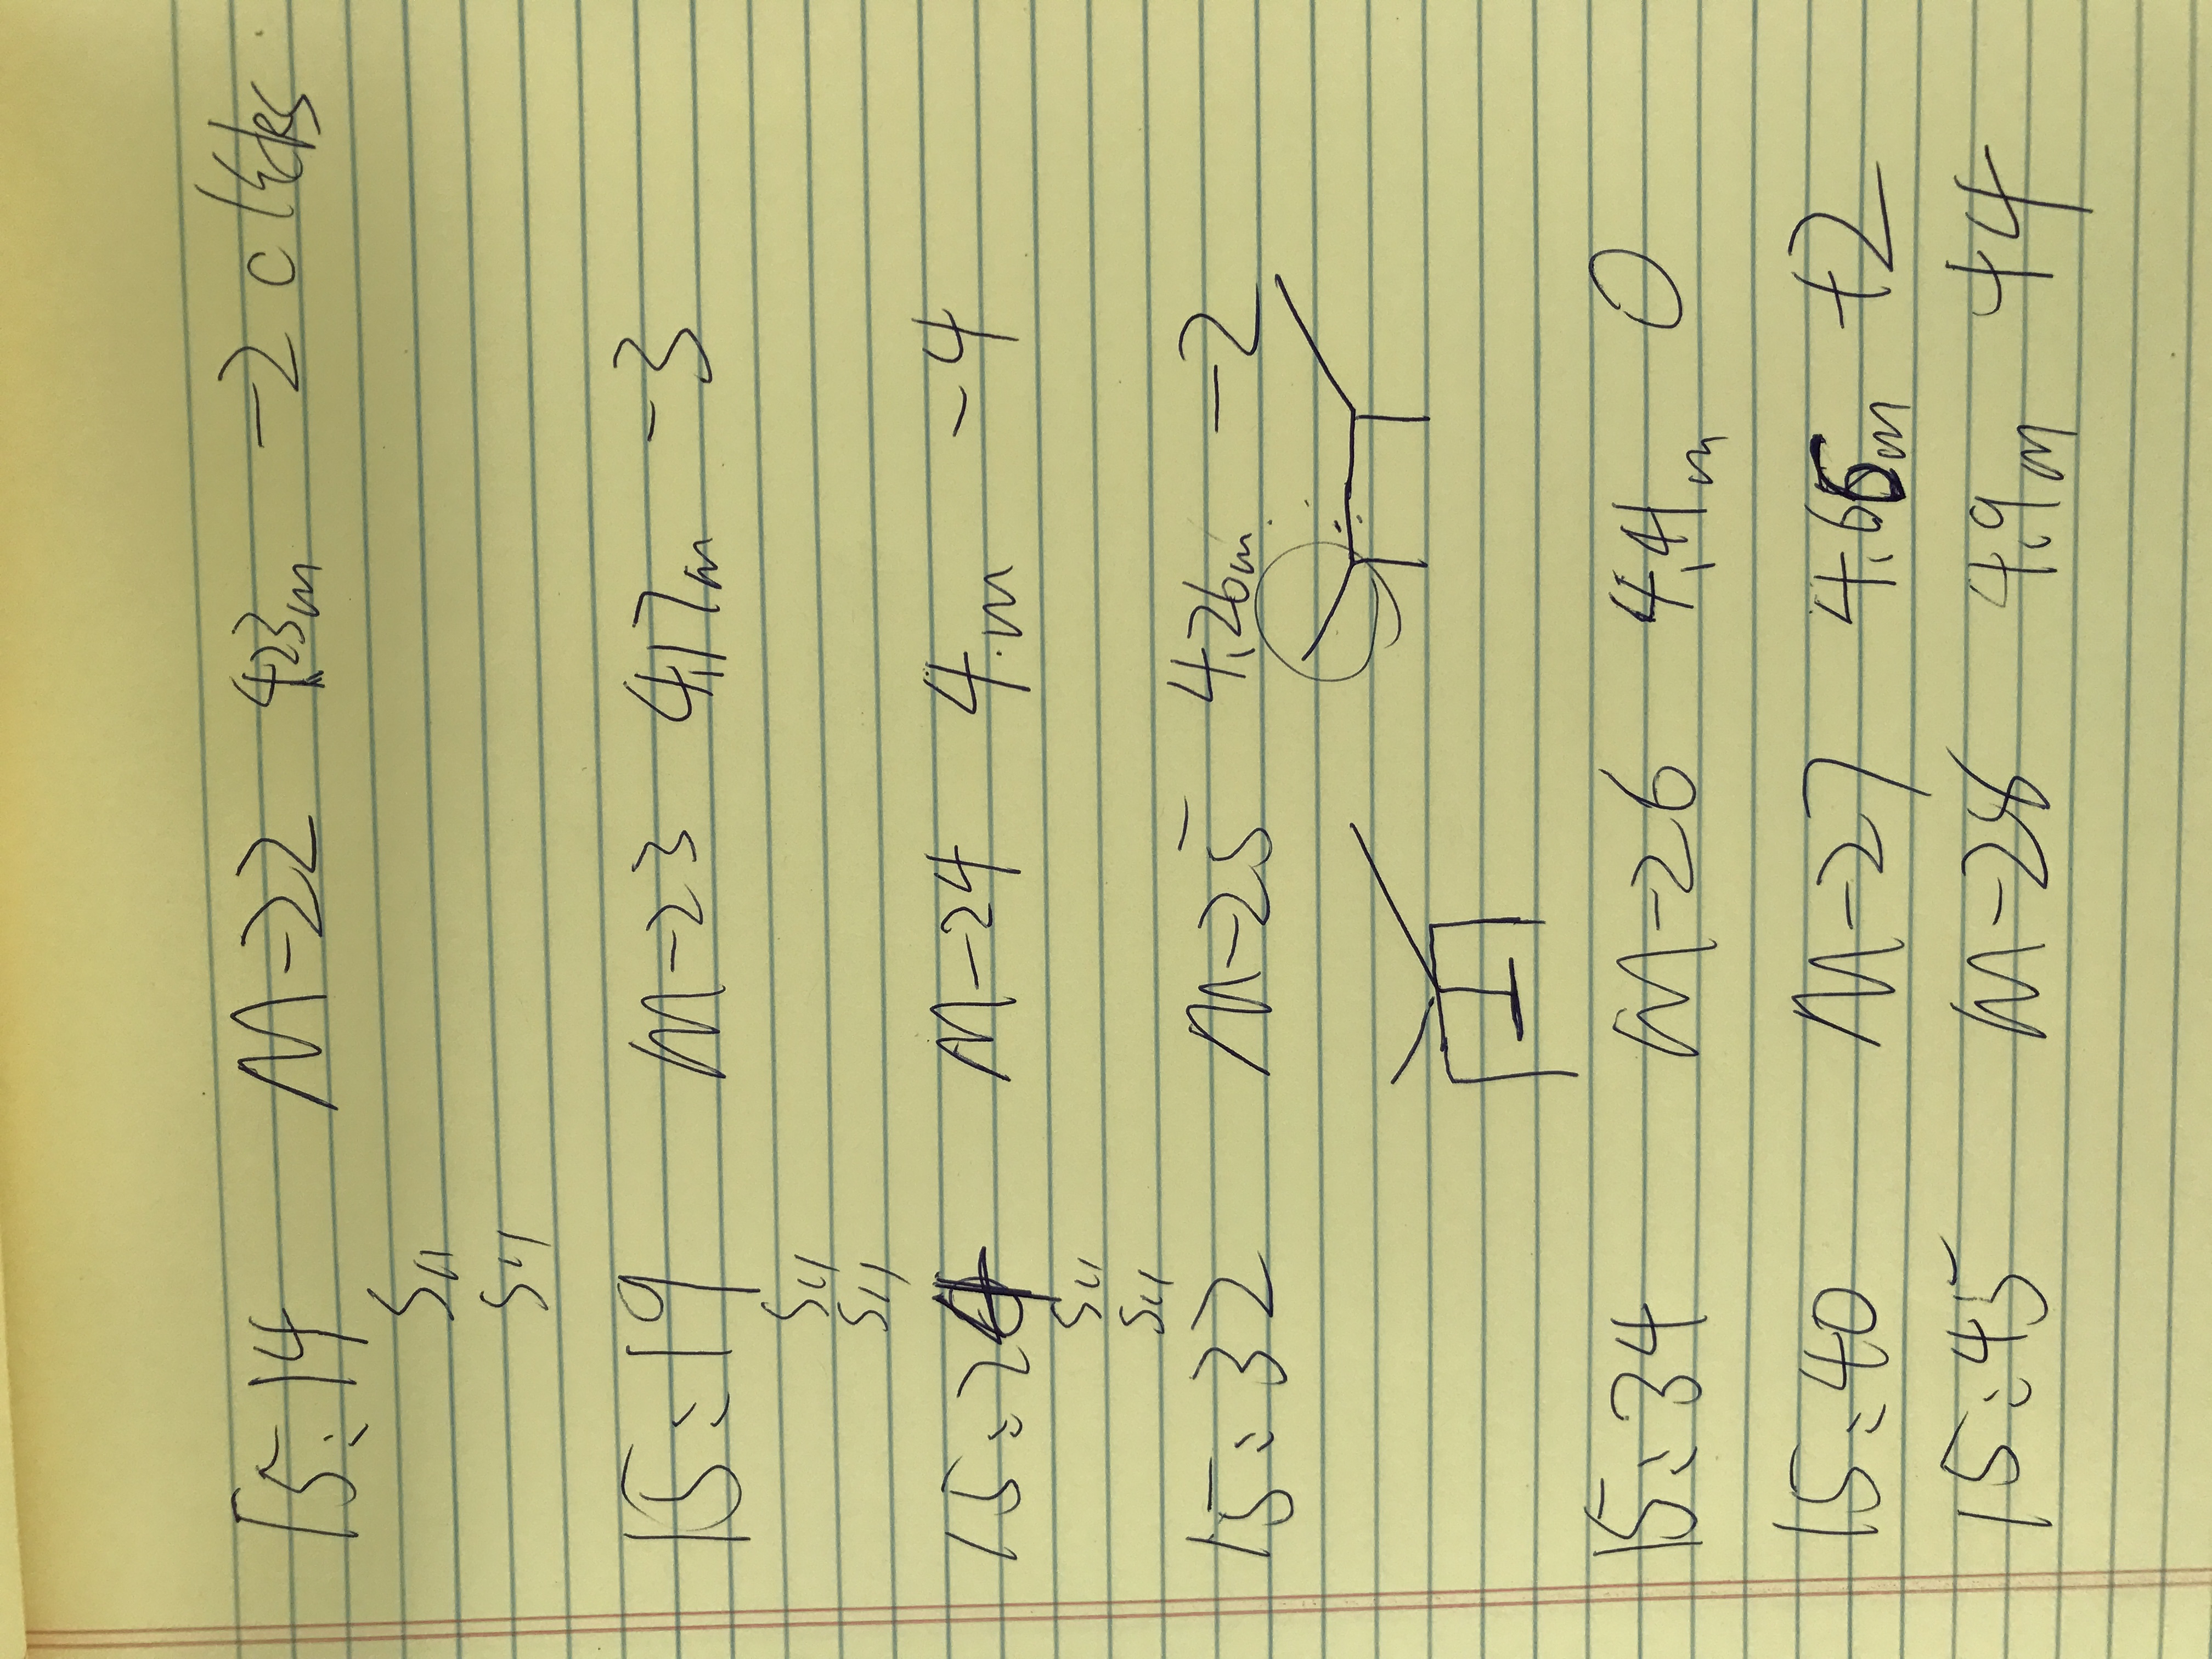 15:14 M-22 4,23m -2 clicks
15:19 M-23 4,17m -3
15:24 M-24 4.m -4
15:32 M-25 4,26m -2
15:34 M-26 4,41m 0
15:40 M-27 4.65m +2
15:45 M-28 4.9m 44